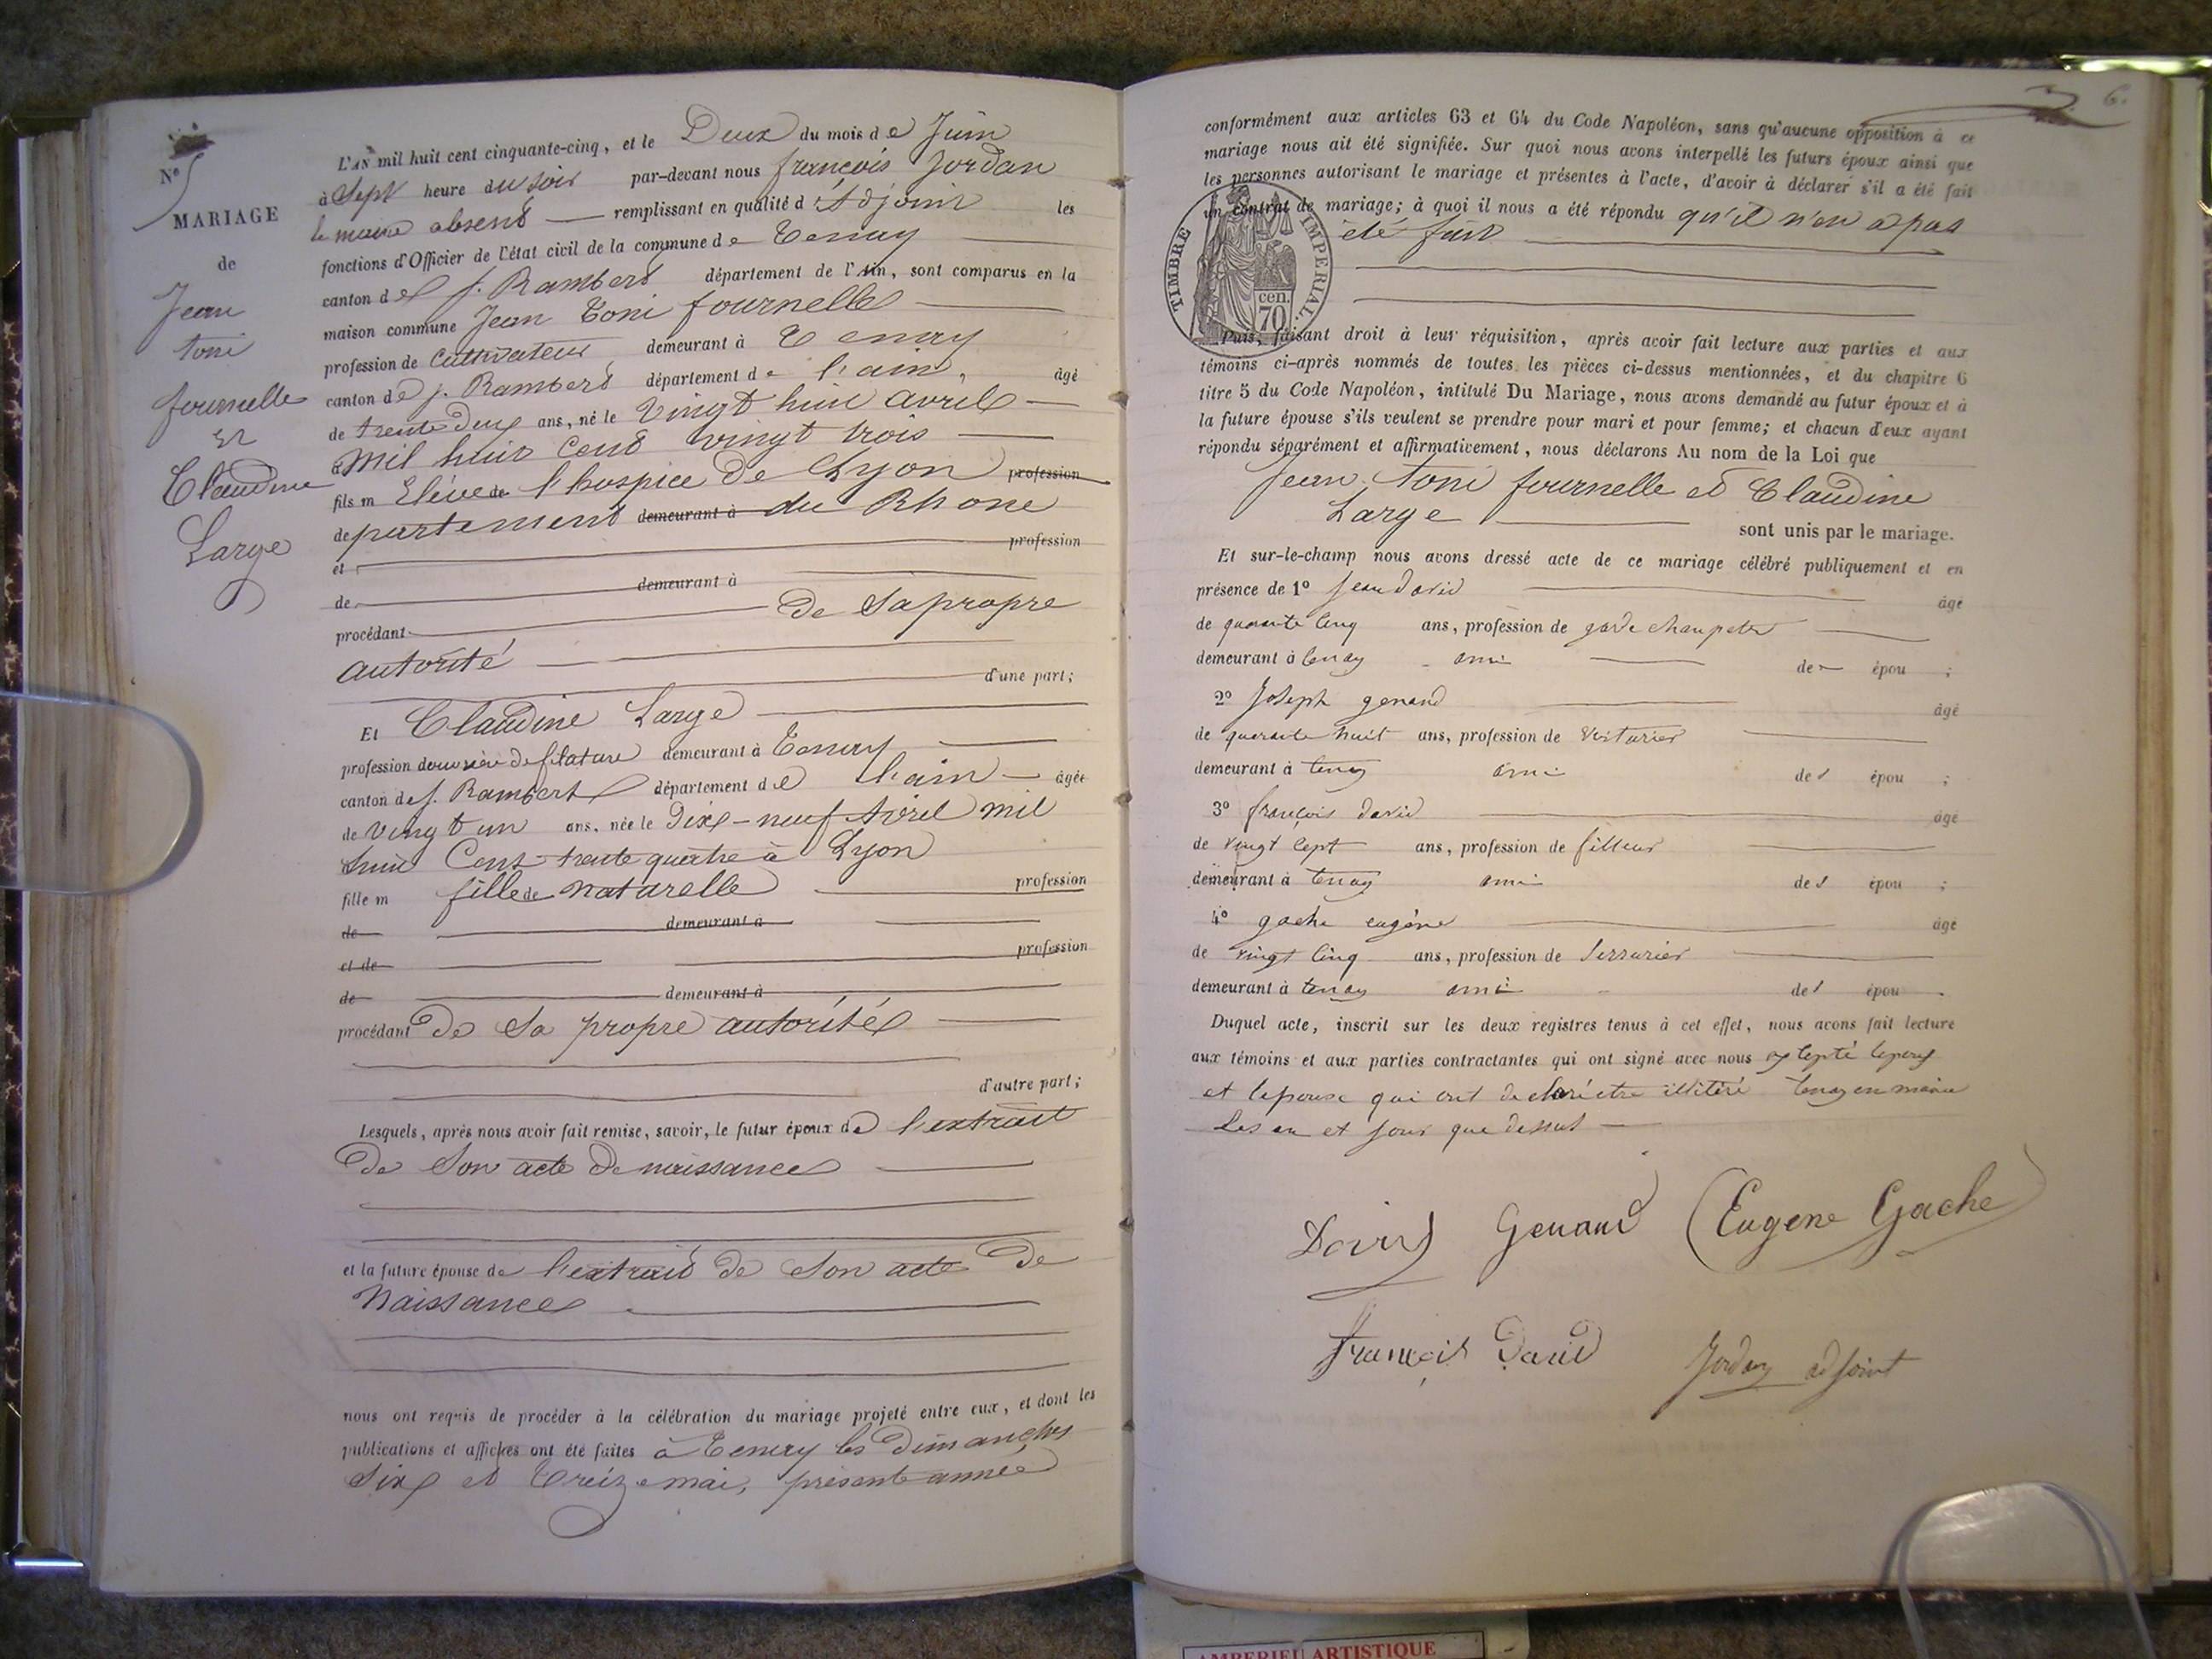 Nº 5
MARIAGE
de
Jean
toni
fournelle
et
Claudine
Large
L'AN mil huit cent cinquante-cinq, et le Deux du mois de Juin
à Sept heure du soir par-devant nous françois Jordan
le maire absent remplissant en qualité d'Adjoint les
fonctions d'Officier de l'état civil de la commune de Tenay
canton de S. Rambert département de l'Ain, sont comparus en la
maison commune Jean Toni fournelle
profession de Cultivateur demeurant à Tenay
canton de S. Rambert département de l'ain, âgé
de trente deux ans, né le vingt huit avril
à Mil huit Cent vingt trois
fils m Elève de l'hospice de Lyon profession
departement demeurant à du Rhone
et profession
de demeurant à
procédant de Sa propre
autorité
d'une part;
Et Claudine Large
profession d'ouvrière de filature demeurant à Tenay
canton de S. Rambert département de l'ain âgée
de vingt un ans, née le Dix-neuf Avril mil
huit Cent trente quatre à Lyon
fille m fille de naturelle profession
de demeurant à
et de profession
de demeurant à
procédant De Sa propre autorité
d'autre part;
Lesquels, après nous avoir fait remise, savoir, le futur époux de l'extrait
De Son acte De naissance
et la future épouse de l'extrait De Son acte De
Naissance
nous ont requis de procéder à la célébration du mariage projeté entre eux, et dont les
publications et affiches ont été faites à Tenay les Dimanches
Six et Treize mai, présente année
6.
conformément aux articles 63 et 64 du Code Napoléon, sans qu'aucune opposition à ce
mariage nous ait été signifiée. Sur quoi nous avons interpellé les futurs époux ainsi que
les personnes autorisant le mariage et présentes à l'acte, d'avoir à déclarer s'il a été fait
un contrat de mariage; à quoi il nous a été répondu qu'il n'en a pas
été fait
TIMBRE IMPERIAL
cen.
70
Puis, faisant droit à leur réquisition, après avoir fait lecture aux parties et aux
témoins ci-après nommés de toutes les pièces ci-dessus mentionnées, et du chapitre 6
titre 5 du Code Napoléon, intitulé Du Mariage, nous avons demandé au futur époux et à
la future épouse s'ils veulent se prendre pour mari et pour femme; et chacun d'eux ayant
répondu séparément et affirmativement, nous déclarons Au nom de la Loi que
Jean toni fournelle et Claudine
Large sont unis par le mariage.
Et sur-le-champ nous avons dressé acte de ce mariage célébré publiquement et en
présence de 1º Jean david âgé
de quarante cinq ans, profession de garde champetre
demeurant à tenay ami de épou ;
2º Joseph genand âgé
de quarante huit ans, profession de voiturier
demeurant à tenay ami de l épou ;
3º françois david âgé
de vingt sept ans, profession de filleur
demeurant à tenay ami de l épou ;
4º gache eugène âgé
de vingt cinq ans, profession de serrurier
demeurant à tenay ami de l épou .
Duquel acte, inscrit sur les deux registres tenus à cet effet, nous avons fait lecture
aux témoins et aux parties contractantes qui ont signé avec nous lepoux
et lepouse qui ont declaré etre tenay en mairie
Les an et jour que dessus
David Genand Eugene Gache
François David Jordan adjoint
AMBERIEU ARTISTIQUE